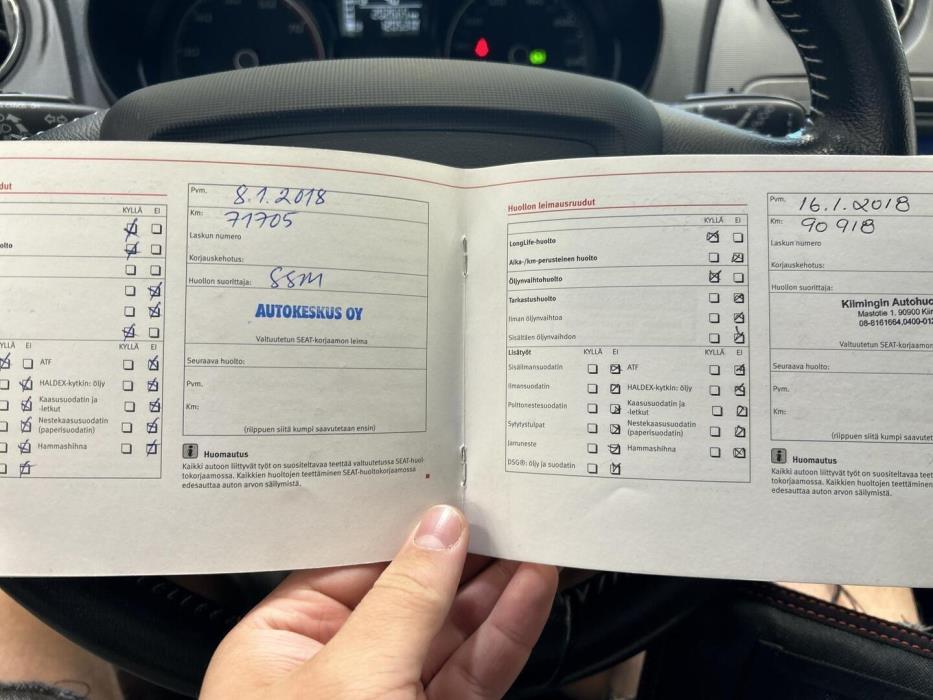 dut
KYLLÄ EI
olto
YLLÄ EI KYLLÄ EI
ATF
HALDEX-kytkin: öljy
Kaasusuodatin ja
-letkut
Nestekaasusuodatin
(paperisuodatin)
Hammashihna
Pvm. 8.1.2018
Km: 71705
Laskun numero
Korjauskehotus:
Huollon suorittaja: SSM
AUTOKESKUS OY
Valtuutetun SEAT-korjaamon leima
Seuraava huolto:
Pvm.
Km:
(riippuen siitä kumpi saavutetaan ensin)
i Huomautus
Kaikki autoon liittyvät työt on suositeltavaa teettää valtuutetussa SEAT-huol-
tokorjaamossa. Kaikkien huoltojen teettäminen SEAT-huoltokorjaamossa
edesauttaa auton arvon säilymistä.
Huollon leimausruudut
KYLLÄ EI
LongLife-huolto
Aika-/km-perusteinen huolto
Öljynvaihtohuolto
Tarkastushuolto
Ilman öljynvaihtoa
Sisältäen öljynvaihdon
Lisätyöt KYLLÄ EI KYLLÄ EI
Sisäilmansuodatin ATF
Ilmansuodatin HALDEX-kytkin: öljy
Polttonestesuodatin Kaasusuodatin ja
-letkut
Sytytystulpat Nestekaasusuodatin
(paperisuodatin)
Jarruneste Hammashihna
DSG®: öljy ja suodatin
Pvm. 16.1.2018
Km: 90 918
Laskun numero
Korjauskehotus:
Huollon suorittaja:
Kiimingin Autohuo
Mastotie 1, 90900 Kiim
08-8161664,0400-012
Valtuutetun SEAT-korjaamon
Seuraava huolto:
Pvm.
Km:
(riippuen siitä kumpi saavutet
i Huomautus
Kaikki autoon liittyvät työt on suositeltavaa teet
tokorjaamossa. Kaikkien huoltojen teettäminen
edesauttaa auton arvon säilymistä.